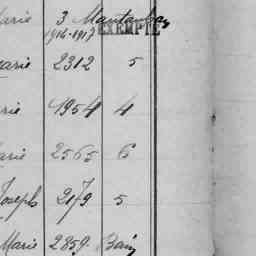 3 Montauban
1916-1917 EXEMPTÉ
arie 2312 5
rie 1954 4
arie 2565 6
Joseph 2179 5
Marie 2859 Bain